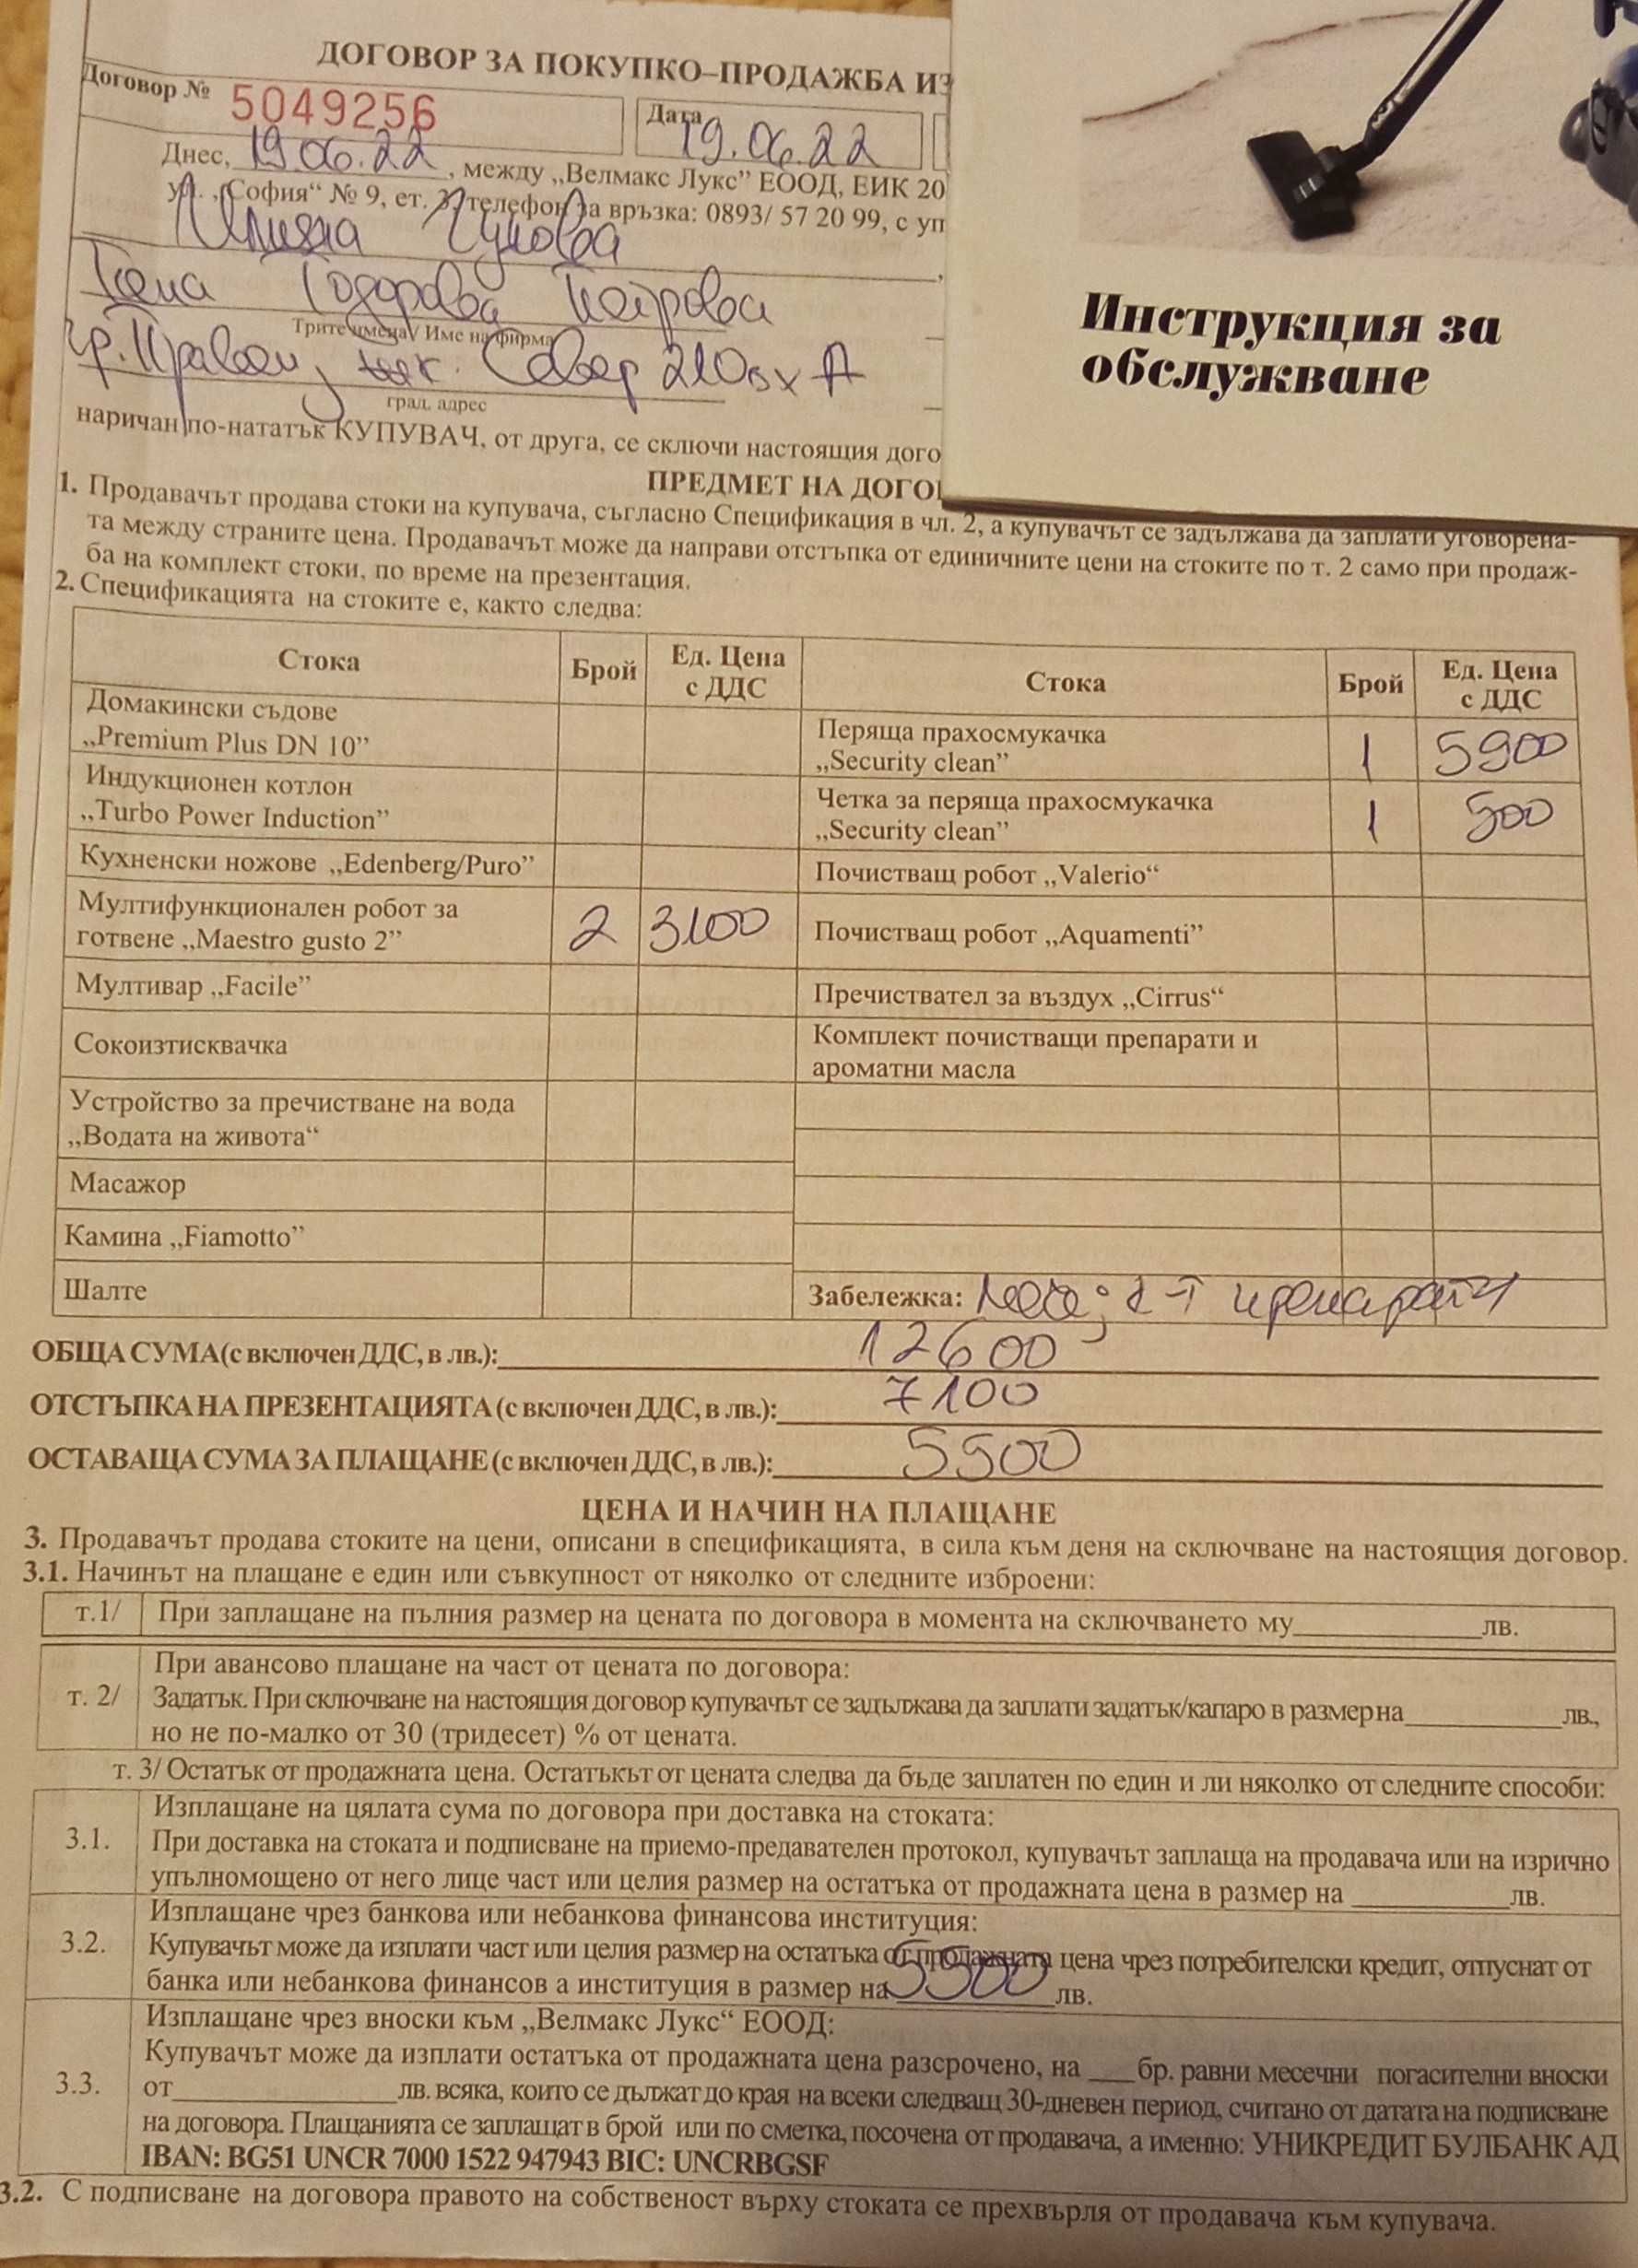 ДОГОВОР ЗА ПОКУПКО–ПРОДАЖБА ИЗ
Договор № 5049256
Дата 19.06.22
Днес, 19.06.22, между „Велмакс Лукс” ЕООД, ЕИК 20
ул. „София“ № 9, ет. 3, телефон за връзка: 0893/ 57 20 99, с уп
Тодорова Петрова
Трите имена/ Име на фирма
гр. Правец, Север 210 вх А
град, адрес
наричан по-нататък КУПУВАЧ, от друга, се сключи настоящия дого
Инструкция за
обслужване
ПРЕДМЕТ НА ДОГО
1. Продавачът продава стоки на купувача, съгласно Спецификация в чл. 2, а купувачът се задължава да заплати уговорена-
та между страните цена. Продавачът може да направи отстъпка от единичните цени на стоките по т. 2 само при продаж-
ба на комплект стоки, по време на презентация.
2. Спецификацията на стоките е, както следва:
Стока Брой Ед. Цена с ДДС Стока Брой Ед. Цена с ДДС
Домакински съдове
„Premium Plus DN 10”
Перяща прахосмукачка
„Security clean” 1 5900
Индукционен котлон
„Turbo Power Induction”
Четка за перяща прахосмукачка
„Security clean” 1 500
Кухненски ножове „Edenberg/Puro”
Почистващ робот „Valerio“
Мултифункционален робот за
готвене „Maestro gusto 2” 2 3100
Почистващ робот „Aquamenti”
Мултивар „Facile”
Пречиствател за въздух „Cirrus“
Сокоизтисквачка
Комплект почистващи препарати и
ароматни масла
Устройство за пречистване на вода
„Водата на живота“
Масажор
Камина „Fiamotto”
Шалте
Забележка: к-т препарати
ОБЩА СУМА (с включен ДДС, в лв.): 12600
ОТСТЪПКА НА ПРЕЗЕНТАЦИЯТА (с включен ДДС, в лв.): 7100
ОСТАВАЩА СУМА ЗА ПЛАЩАНЕ (с включен ДДС, в лв.): 5500
ЦЕНА И НАЧИН НА ПЛАЩАНЕ
3. Продавачът продава стоките на цени, описани в спецификацията, в сила към деня на сключване на настоящия договор.
3.1. Начинът на плащане е един или съвкупност от няколко от следните изброени:
т.1/ При заплащане на пълния размер на цената по договора в момента на сключването му____________лв.
При авансово плащане на част от цената по договора:
т. 2/ Задатък. При сключване на настоящия договор купувачът се задължава да заплати задатък/капаро в размер на__________лв.,
но не по-малко от 30 (тридесет) % от цената.
т. 3/ Остатък от продажната цена. Остатъкът от цената следва да бъде заплатен по един и ли няколко от следните способи:
Изплащане на цялата сума по договора при доставка на стоката:
3.1. При доставка на стоката и подписване на приемо-предавателен протокол, купувачът заплаща на продавача или на изрично
упълномощено от него лице част или целия размер на остатъка от продажната цена в размер на __________лв.
Изплащане чрез банкова или небанкова финансова институция:
3.2. Купувачът може да изплати част или целия размер на остатъка от продажната цена чрез потребителски кредит, отпуснат от
банка или небанкова финансов а институция в размер на 5500 лв.
Изплащане чрез вноски към „Велмакс Лукс“ ЕООД:
Купувачът може да изплати остатъка от продажната цена разсрочено, на ___бр. равни месечни погасителни вноски
3.3. от______________лв. всяка, които се дължат до края на всеки следващ 30-дневен период, считано от датата на подписване
на договора. Плащанията се заплащат в брой или по сметка, посочена от продавача, а именно: УНИКРЕДИТ БУЛБАНК АД
IBAN: BG51 UNCR 7000 1522 947943 BIC: UNCRBGSF
3.2. С подписване на договора правото на собственост върху стоката се прехвърля от продавача към купувача.